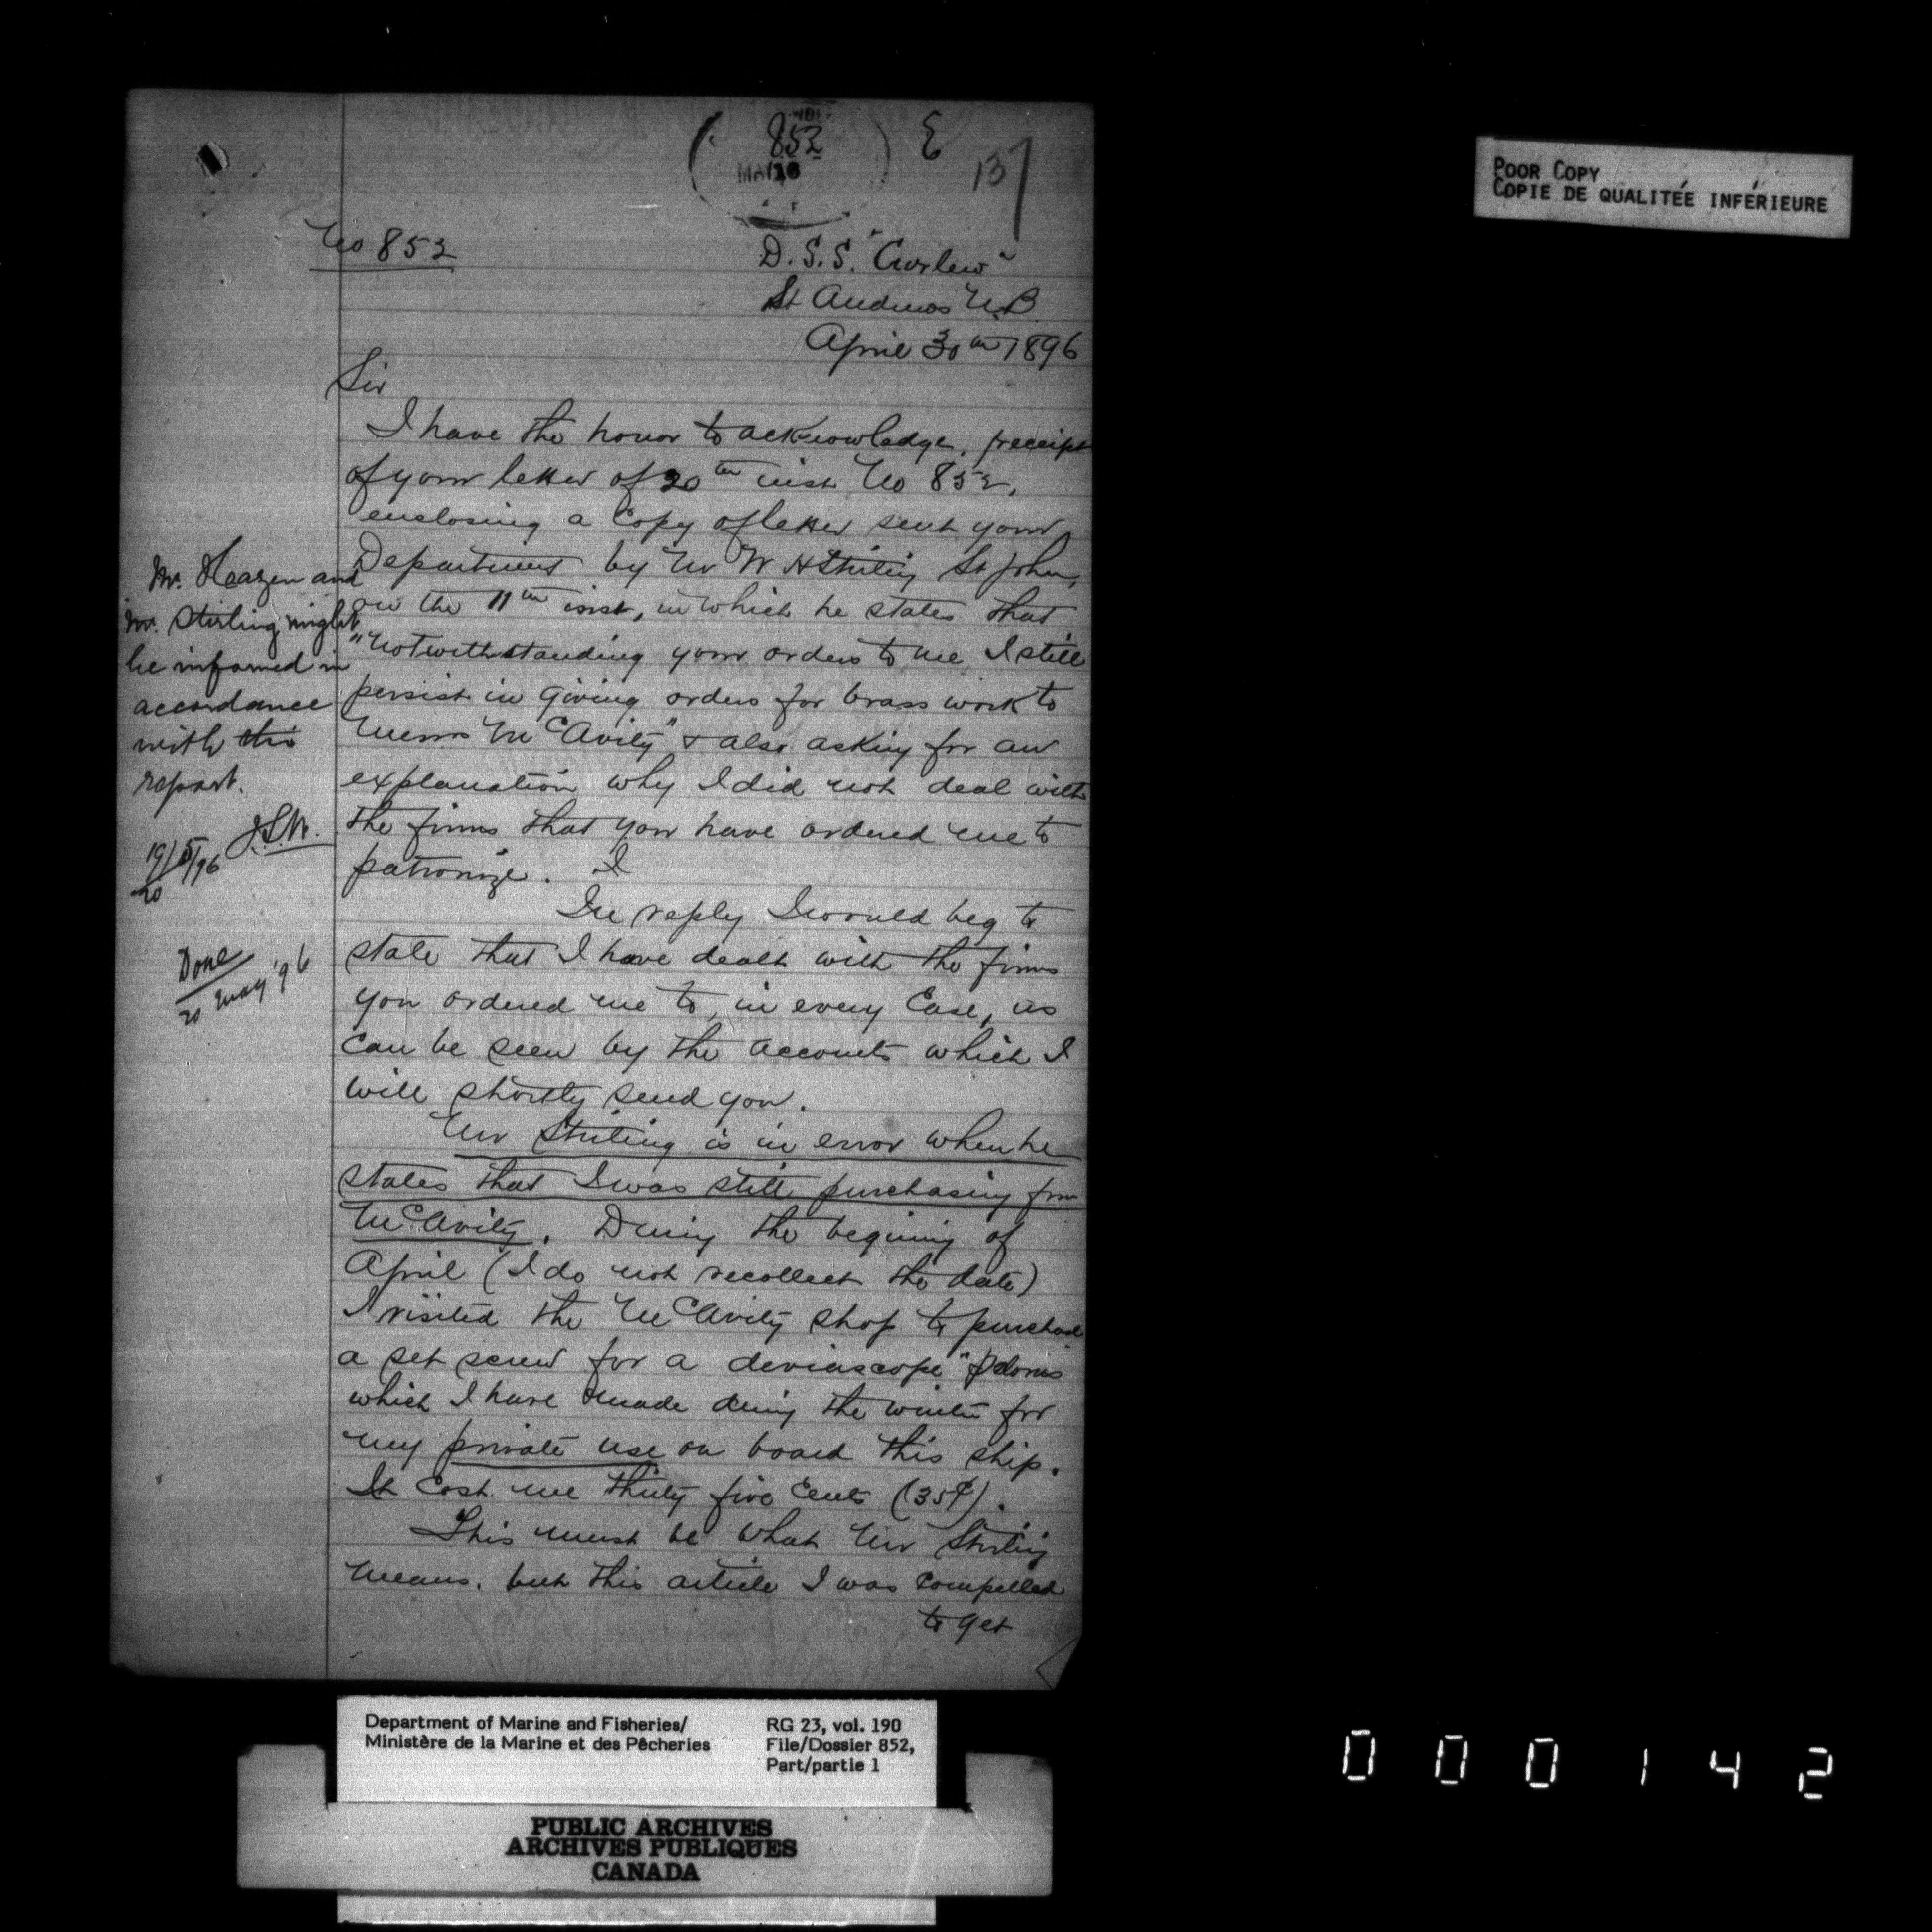 852
MAY 16
E
137
No 852
D.S.S. "Curlew"
St Andrews N.B.
April 30th 1896
Sir
I have the honor to acknowledge, receipt
of your letter of 20th inst No 852,
enclosing a Copy of letter sent your
Department by Mr W H Stirling St John,
on the 11th inst, in which he states that,
"Notwithstanding your orders to me I still
persist in giving orders for brass work to
Messrs McAvity" & also asking for an
explanation why I did not deal with
the firms that you have ordered me to
patronize. I
In reply I would beg to
state that I have dealt with the firms
you ordered me to, in every Case, as
can be seen by the accounts which I
will shortly send you.
Mr Stirling is in error when he
states that I was still purchasing from
McAvity. During the begining of
April (I do not recollect the date)
I visited the McAvity shop to purchase
a set screw for a deviascope
which I have made during the winter for
my private use on board this ship.
It Cost me thirty five Cents (35¢).
This must be what Mr Stirling
means, but this article I was Compelled
to get
Mr. Heazen and
Mr. Stirling might
be informed in
accordance
with this
report.
J.S.W.
19/5/96
20
Done
20 May '96
POOR COPY
COPIE DE QUALITÉE INFÉRIEURE
Department of Marine and Fisheries/
Ministère de la Marine et des Pêcheries
RG 23, vol. 190
File/Dossier 852,
Part/partie 1
PUBLIC ARCHIVES
ARCHIVES PUBLIQUES
CANADA
000142